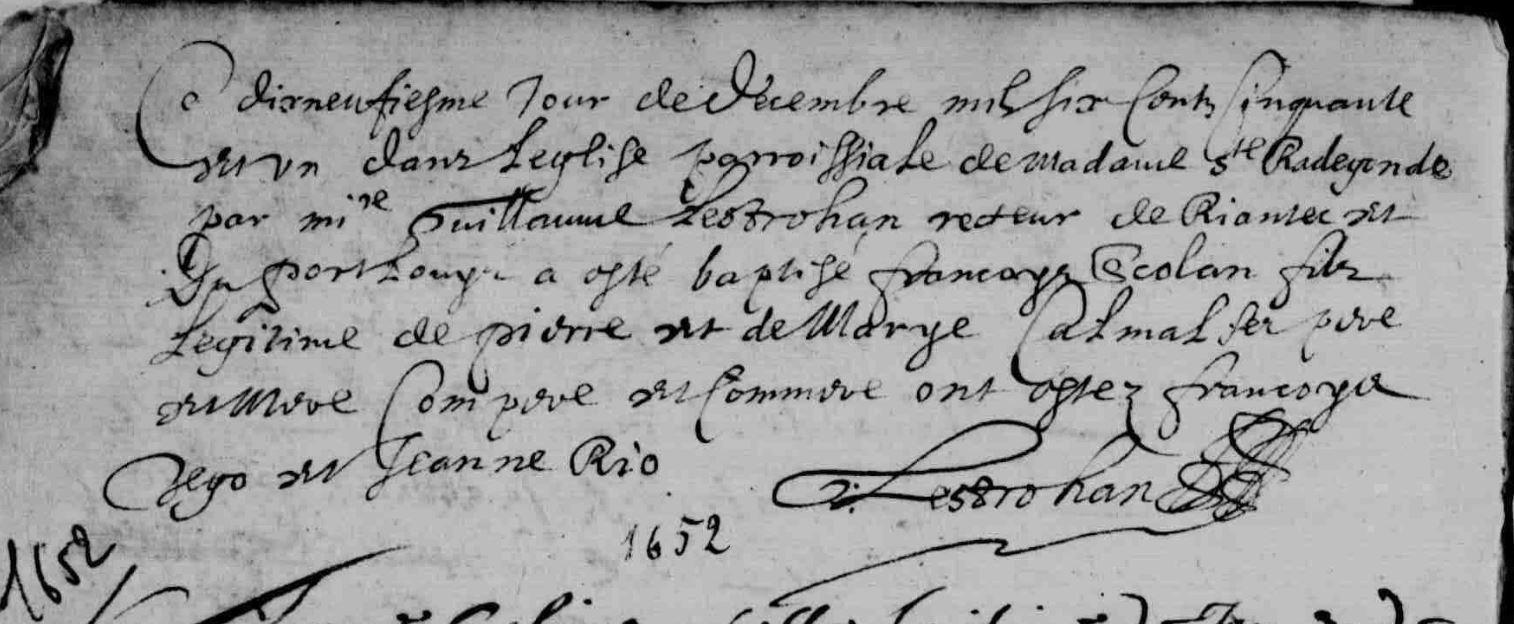 Ce dixneufiesme Jour de decembre mil six centz Cinquante
et un dans Leglise parroissiale de Madame Ste Radegonde
par mire Guillaume Lestrohan recteur de Riantec et
Du port Louys a esté baptisé francoys Escolan filz
Legitime de pierre et de Marye Calmal ses pere
et Mere Compere et Commere ont estez francoys
Jego et Jeanne Rio
G: Lestrohan
1652
1652